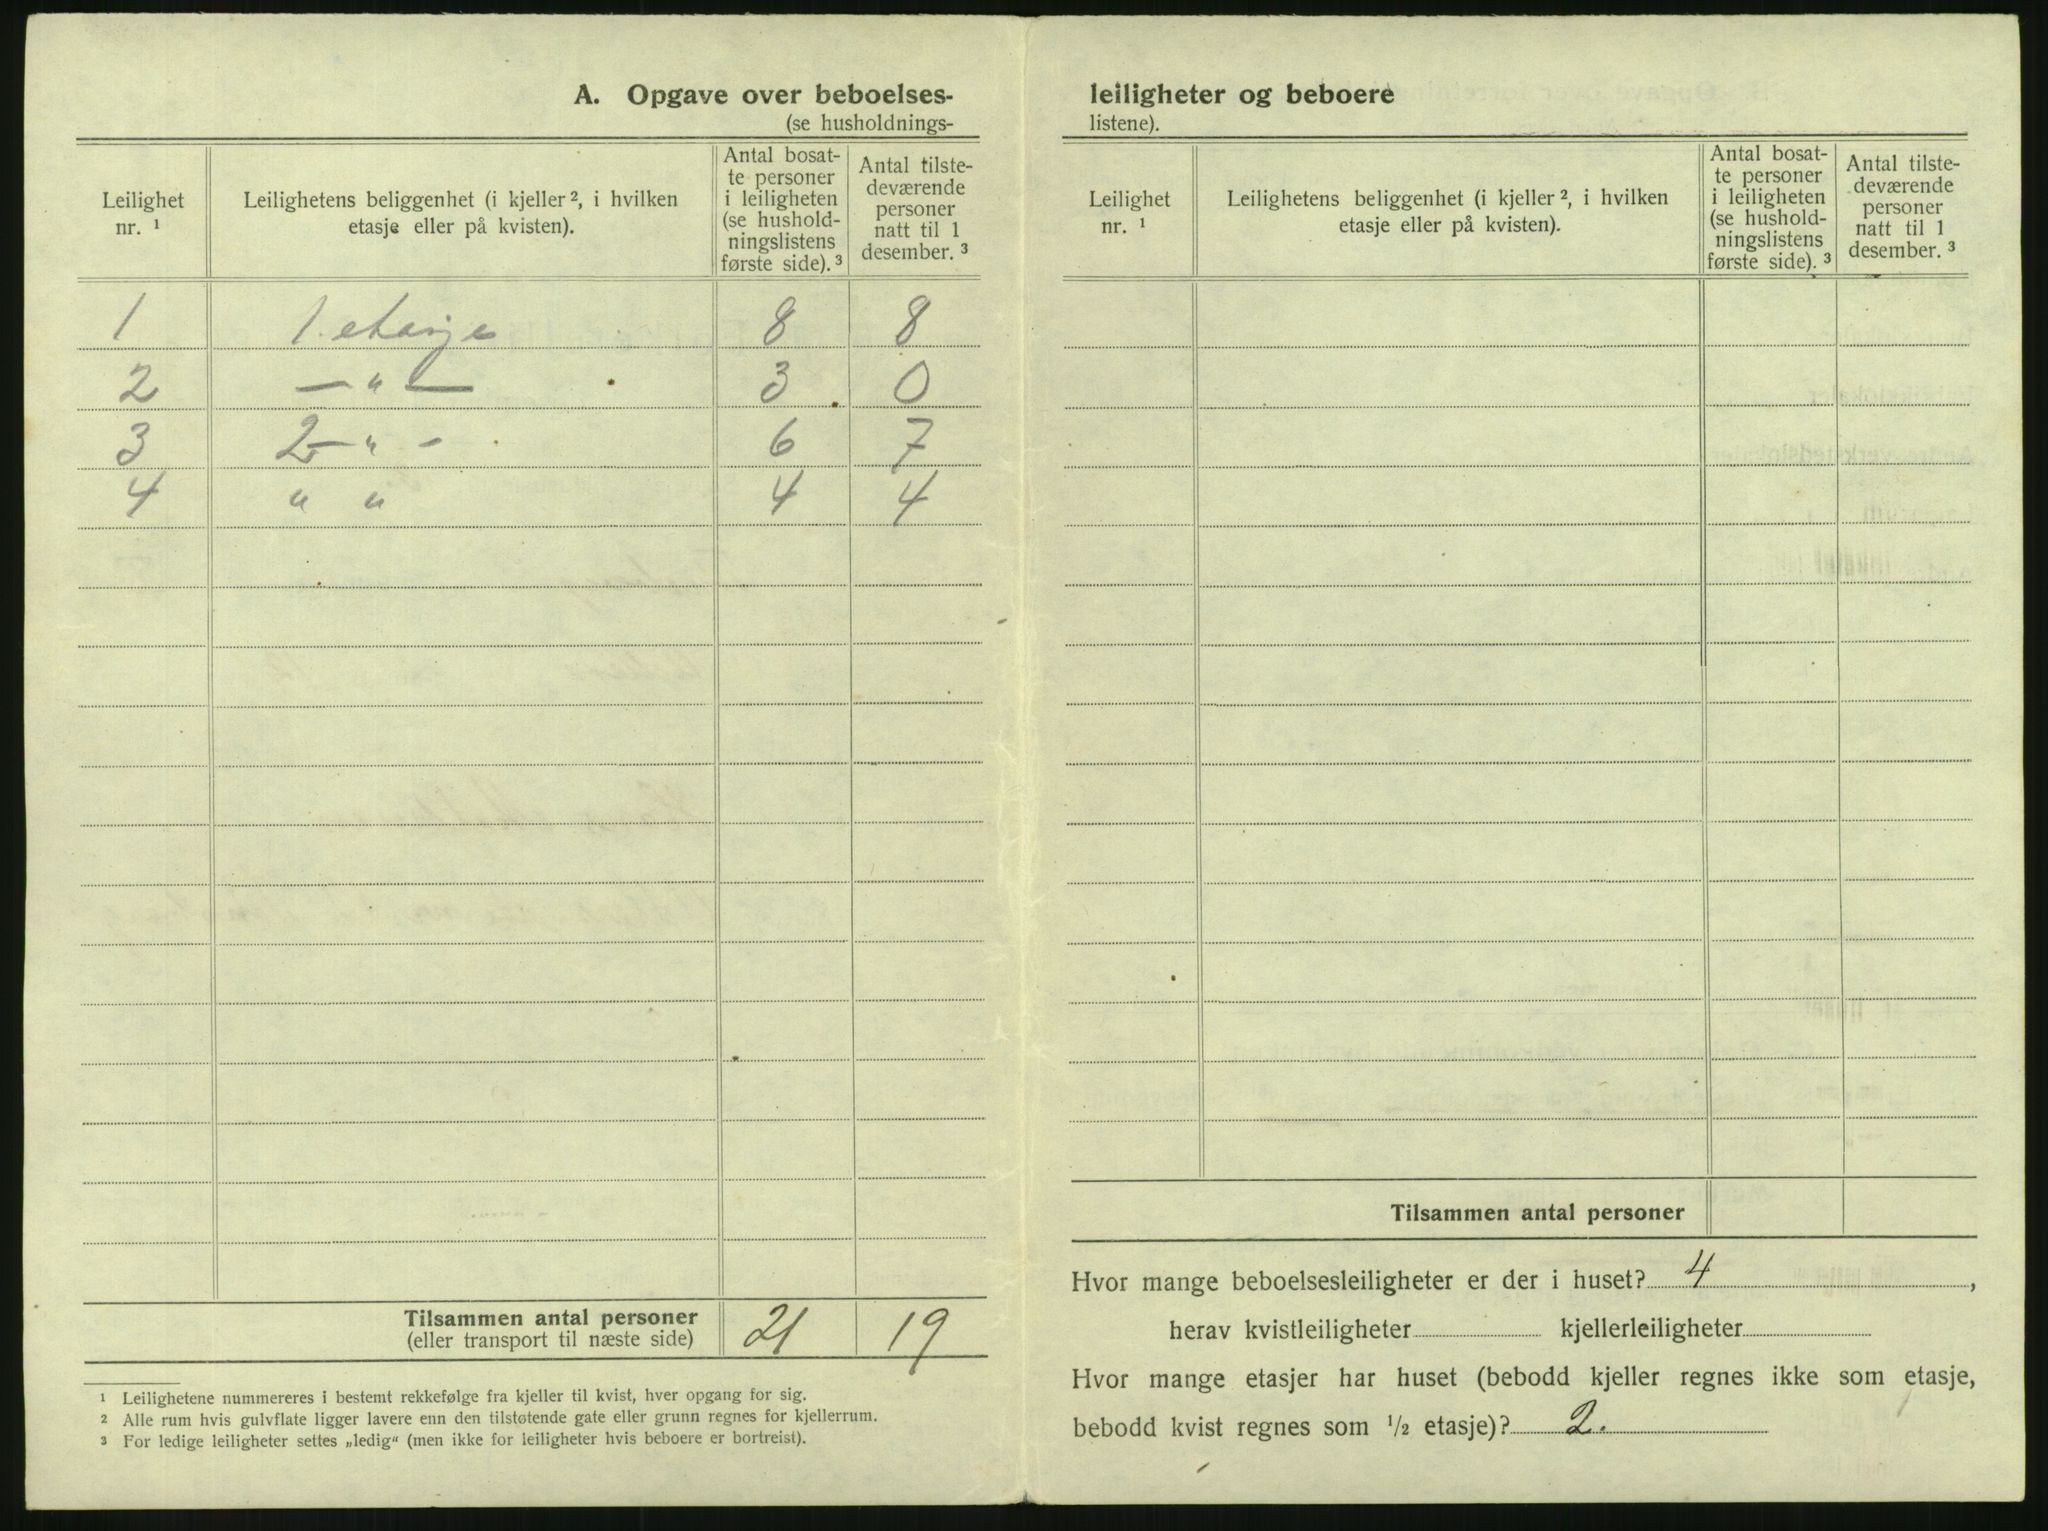 A. Opgave over beboelses-
(se husholdnings-
Leilighet
nr. ¹
Leilighetens beliggenhet (i kjeller ², i hvilken
etasje eller på kvisten).
Antal bosat-
te personer
i leiligheten
(se hushold-
ningslistens
første side). ³
Antal tilste-
deværende
personer
natt til 1
desember. ³
1 1. etasje 8 8
2 — „ — 3 0
3 2 — „ - 6 7
4 „ „ 4 4
Tilsammen antal personer 21 19
(eller transport til næste side)
¹ Leilighetene nummereres i bestemt rekkefølge fra kjeller til kvist, hver opgang for sig.
² Alle rum hvis gulvflate ligger lavere enn den tilstøtende gate eller grunn regnes for kjellerrum.
³ For ledige leiligheter settes „ledig“ (men ikke for leiligheter hvis beboere er bortreist).
leiligheter og beboere
listene).
Leilighet
nr. ¹
Leilighetens beliggenhet (i kjeller ², i hvilken
etasje eller på kvisten).
Antal bosat-
te personer
i leiligheten
(se hushold-
ningslistens
første side). ³
Antal tilste-
deværende
personer
natt til 1
desember. ³
Tilsammen antal personer
Hvor mange beboelsesleiligheter er der i huset? 4,
herav kvistleiligheter kjellerleiligheter
Hvor mange etasjer har huset (bebodd kjeller regnes ikke som etasje,
bebodd kvist regnes som ½ etasje)? 2.